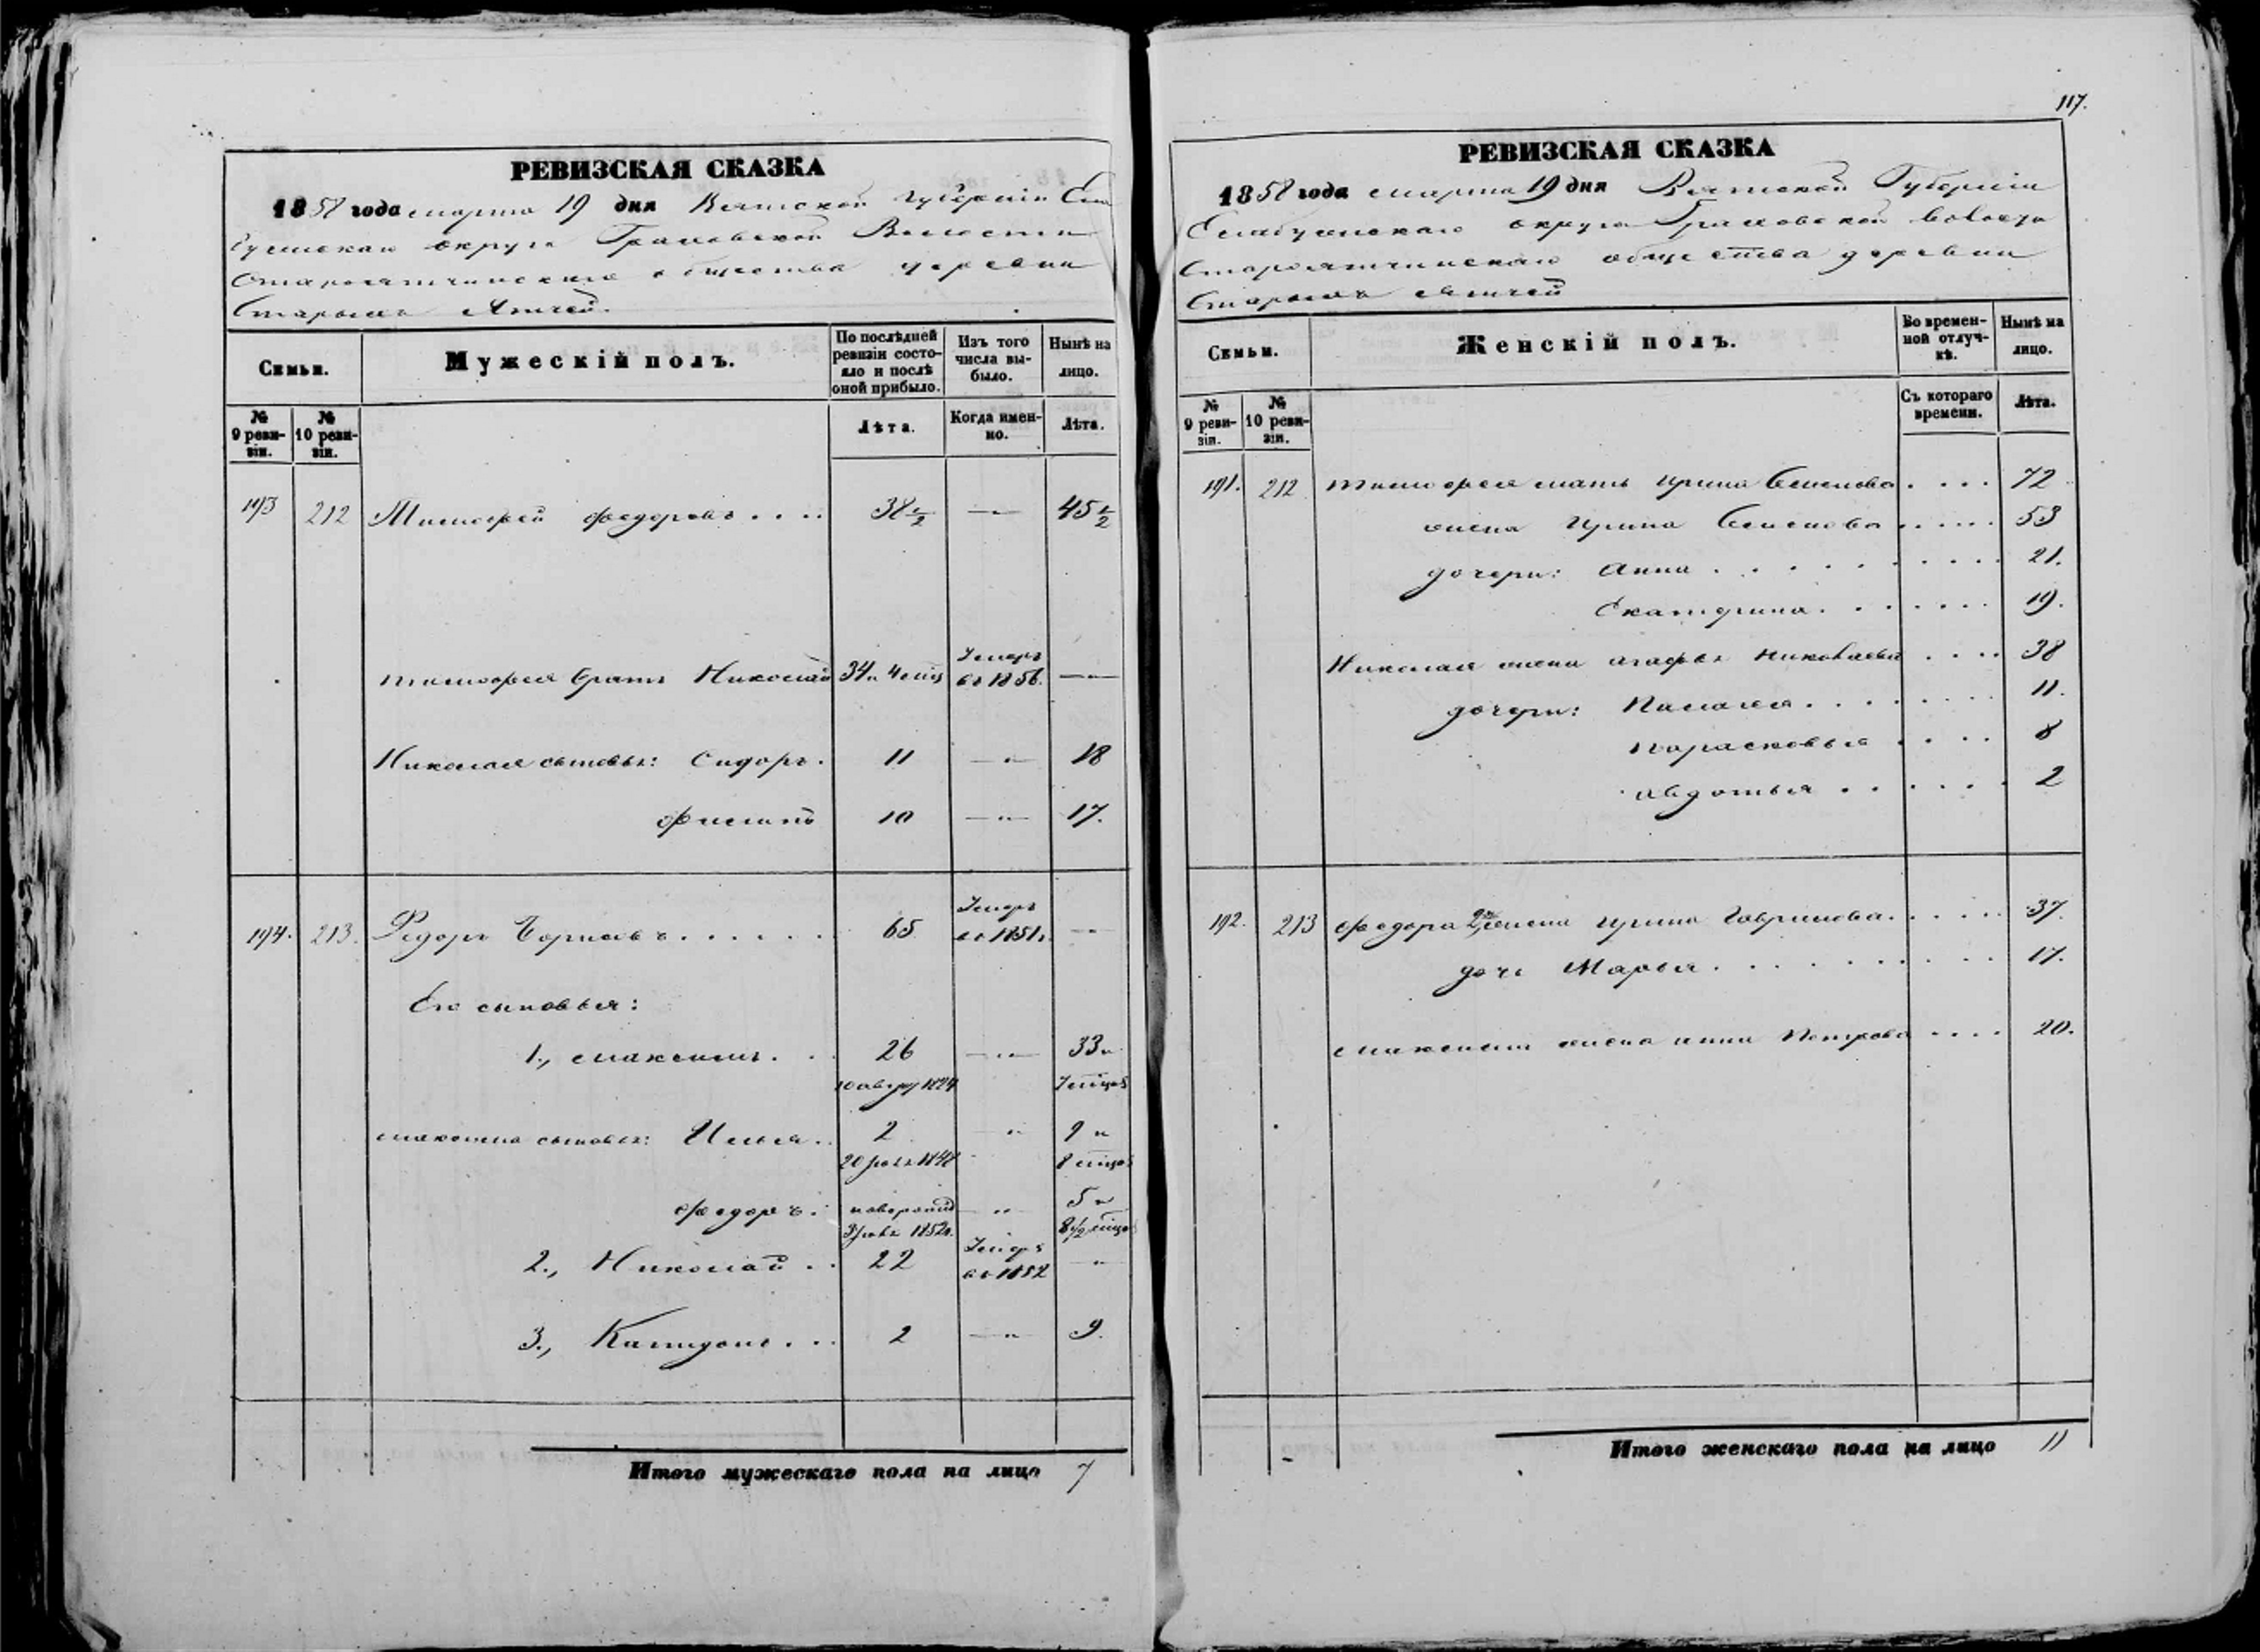 РЕВИЗСКАЯ СКАЗКА
1858 года марта 19 дня Вятской Губернiи Ела
бужскаго округа Грахов­ской Волости
Староятчинскаго общества деревни
Старыхъ Ятчей.
Семьи.
Мужескiй полъ.
По послѣдней ревизiи состо-
яло и послѣ
оной прибыло.
Изъ того
числа вы-
было.
Нынѣ на
лицо.
№
9 реви-
зiи.
№
10 реви-
зiи.
Лѣта.
Когда имен-
но.
Лѣта.
193 212 Тимофей Федоровъ . . . . 38½ — " — 45½
Тимофея братъ Николай 34 и 4 мѣс Умеръ въ 1856. — " —
Николая сыновья: Сидоръ . 11 — " — 18
Филипъ 10 — " — 17.
194. 213. Федоръ Борисовъ . . . . . . 65 Умеръ въ 1851 г. — " —
Его сыновья:
1., Максимъ . . 26 — " — 33 и
Максима сыновья: Илья . . 2 " 9 и
8 мѣсяц
Федоръ . новорожд " 5 и
1852 г. 8½ мѣсяц
2., Николай . . 22 Умеръ въ 1852 "
3., Калидонъ . . . 2 — " — 9.
Итого мужескаго пола на лицо 7
117.
РЕВИЗСКАЯ СКАЗКА
1858 года марта 19 дня Вятской Губернiи
Елабужскаго округа Граховской волости
Староятчинскаго общества деревни
Старыхъ Ятчей
Семьи.
Женскiй полъ.
Во времен-
ной отлуч-
кѣ.
Нынѣ на
лицо.
№
9 реви-
зiи.
№
10 реви-
зiи.
Съ котораго
времени.
Лѣта.
191. 212 Тимофея мать Ирина Семенова . . . . 72
жена Ирина Семенова . . . . . 53
дочери: Анна . . . . . . . . . . 21.
Екатерина . . . . . . . 19.
Николая жена Агафья Николаева . . . . 38
дочери: Пелагея . . . . . . . . 11.
Парасковья . . . . 8
Авдотья . . . . . . 2
192. 213 Федора 2я жена Ирина Гаврилова . . . . . 37.
дочь Марья . . . . . . . . . . 17.
Максима жена Анна Петрова . . . . 20.
Итого женскаго пола на лицо 11